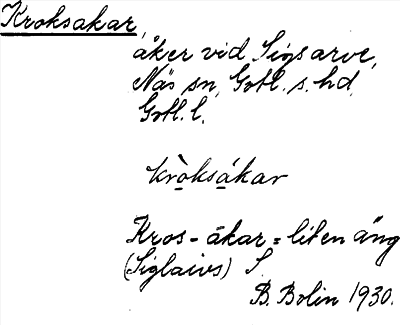 Kroksakar,
åker vid Sigsarve,
Näs sn, Gotl. s. hd,
Gotl. l.
kròksákar
Kros-åkar = liten äng
(Siglaivs) S.
B. Bolin 1930.